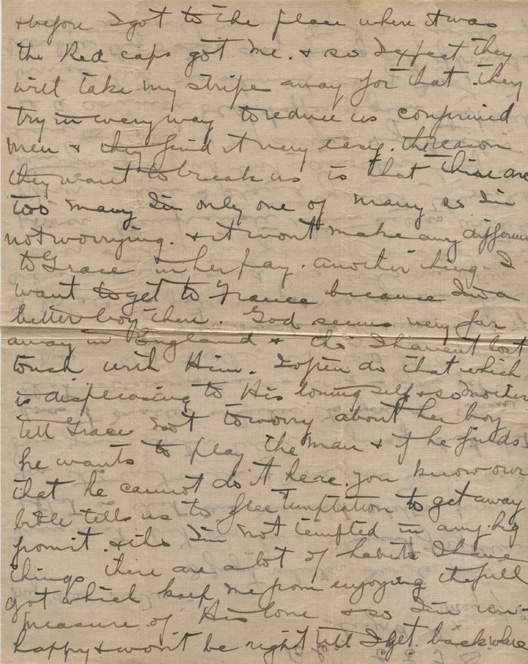 & before I got to the place where I was
the Red caps got me. & so I expect they
will take my stripe away for that. they
try in every way to reduce us confirmed
men & they find it very easy. the reason
they want to break us is that there are
too many I'm only one of many so I'm
not worrying. & it wont make any difference
to Grace in her pay. another thing I
want to get to France because I'm a
better boy there. God seems very far
away in England & tho I havent lost
touch with Him. I often do that which
is displeasing to His loving self & so mother
tell Grace not to worry about her boy
he wants to play the man & if he finds
that he cannot do it here. you know our
bible tells us to flee temptation to get away
from it. & tho I'm not tempted in any big
things there are a lot of habits I have
got which keep me from enjoying the full
measure of His love & so I'm
happy & wont be right till I get back where